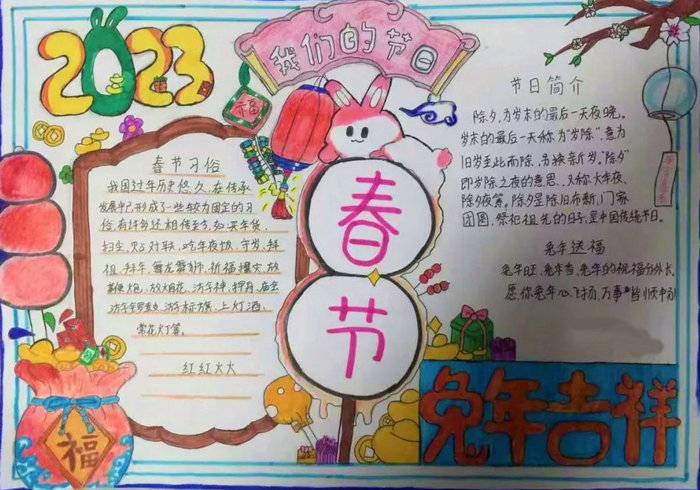 2023
我们的节日
福
春节习俗
我国过年历史悠久,在传承
发展中已形成了一些较为固定的习
俗,有许多还相传至今,如买年货、
扫尘,贴对联,吃年夜饭,守岁,拜
祖,拜年,舞龙舞狮,祈福攘灾,放
鞭炮,放烟花,游神,押舟,庙会
游锣鼓,游标旗,上灯酒,
赏花灯等。
红红火火
福
春
节
节日简介
除夕,为岁末的最后一天夜晚。
岁末的最后一天称为"岁除",意为
旧岁至此而除,另换新岁。"除夕"
即岁除之夜的意思,又称大年夜、
除夕夜等。除夕是除旧布新、门家
团圆、祭祀祖先的日子,是中国传统节日。
兔年送福
兔年旺,兔年香,兔年的祝福分外长。
愿你兔年心飞扬,万事皆顺
兔年吉祥